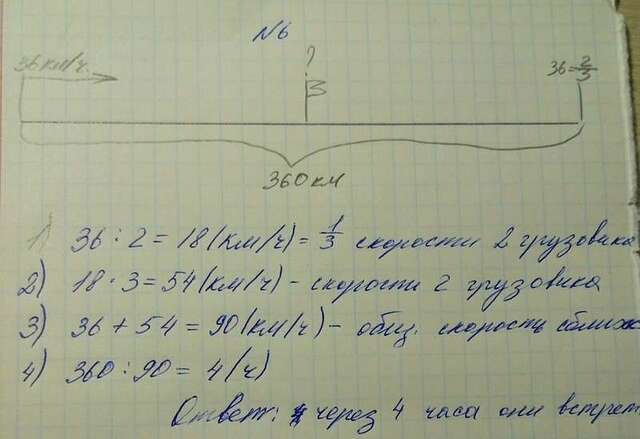 №6
36 км/ч. ? 36 = 2/3
360 км
1) 36 : 2 = 18 (км/ч) = 1/3 скорости 2 грузовика
2) 18 · 3 = 54 (км/ч) - скорости 2 грузовика
3) 36 + 54 = 90 (км/ч) - общ. скорость сближ
4) 360 : 90 = 4 (ч)
Ответ: через 4 часа они встрет